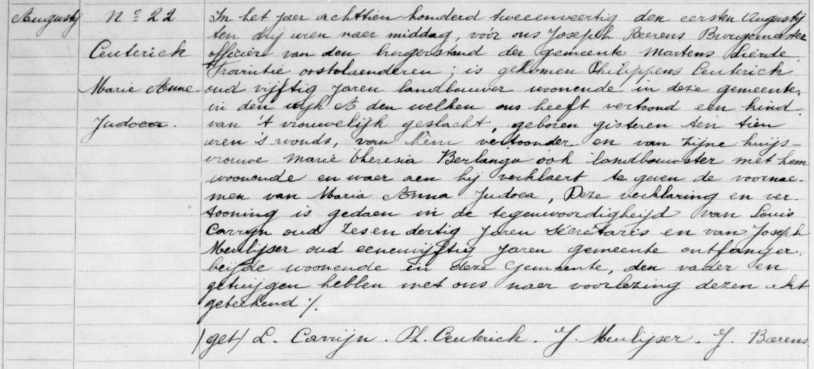 Augustij
Nr 22
Ceuterick
Marie Anne
Judoca.
In het jaer achttien honderd tweeenveertig den eersten Augustij
ten drij uren naer middag, vóór ons Joseph Baerens Burgemeester
officier van den burgerstand der gemeente Martens Lierde
Provintie oostvlaenderen, is gekomen Philippens Ceuterick
oud vijftig jaren landbouwer woonende in deze gemeente,
in den wijk A den welken ons heeft vertoond een kind
van 't vrouwelijk geslacht, geboren gisteren ten tien
uren 's avonds, van hem vertoonder en van zijne huijs-
vrouwe Marie Theresia Berlange ook landbouwster met hem
woonende en waer aen hij verklaert te geven de voornae-
men van Maria Anna Judoca, Deze verklaring en ver-
tooning is gedaen in de tegenwoordigheijd van Louis
Carrijn oud zesendertig jaren secretaris en van Joseph
Meulijser oud eenenvijftig jaren gemeente ontfanger
beijde woonende in deze Gemeente, den vader en
getuijgen hebben met ons naer voorlezing dezen akt
geteekend ./.
(get) L. Carrijn. Ph. Ceuterick. J. Meulijser. J. Baerens